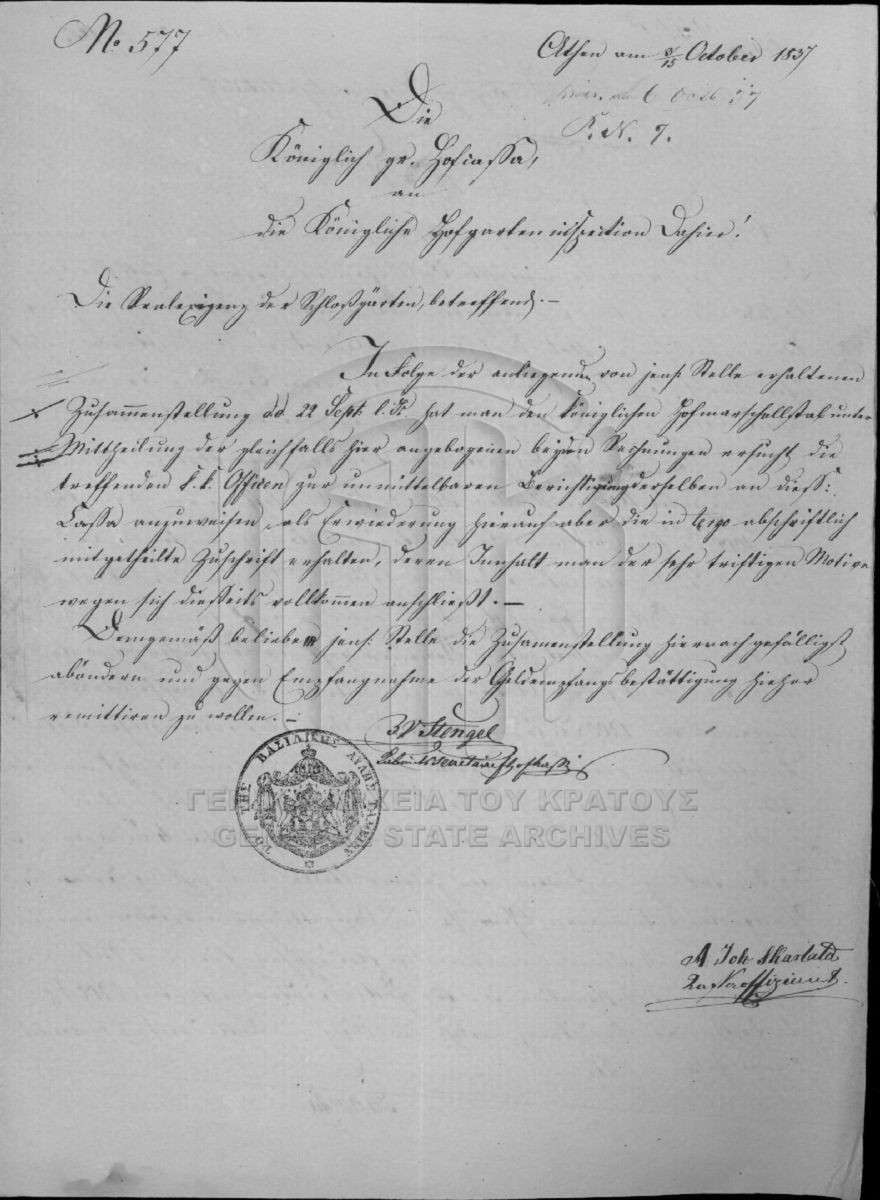 No 577
Athen am 3/15 October 1837
P. N. 7.
Die
Königlich gr. Hofcassa,
an
die Königliche Hofgarteninspection Dahier!
Die Realexigenz der Schloßgärten, betreffend. –
In Folge der anliegenden von jens: Stelle erhaltenen
Zusammenstellung dd 22 Sept: l. Js hat man den Königlichen Hofmarschallstab unter
Mittheilung der gleichfalls hier angebogenen beyden Rechnungen ersucht, die
treffenden k. k. Offizen zur unmittelbaren Berichtigung derselben an dieß:
Cassa anzuweisen, als Erwiederung hierauf aber die in tergo abschriftlich
mitgetheilte Zuschrift erhalten, deren Innhalt man der sehr triftigen Motive
wegen sich diesseits vollkommen anschließt. –
Demgemäß beliebe jens: Stelle die Zusamenstellung hiernach gefälligst
abändern und gegen Empfangnahme der Geldempfangsbestättigung hieher
remittiren zu wollen. –
Stengel
ΤΟΥ ΤΗΣ ΒΑΣΙΛΙΚΗΣ ΑΥΛΗΣ ΤΑΜΕΙΟΥ
ΓΕΝΙΚΑ ΑΡΧΕΙΑ ΤΟΥ ΚΡΑΤΟΥΣ
GENERAL STATE ARCHIVES
A. Joh Skarlato